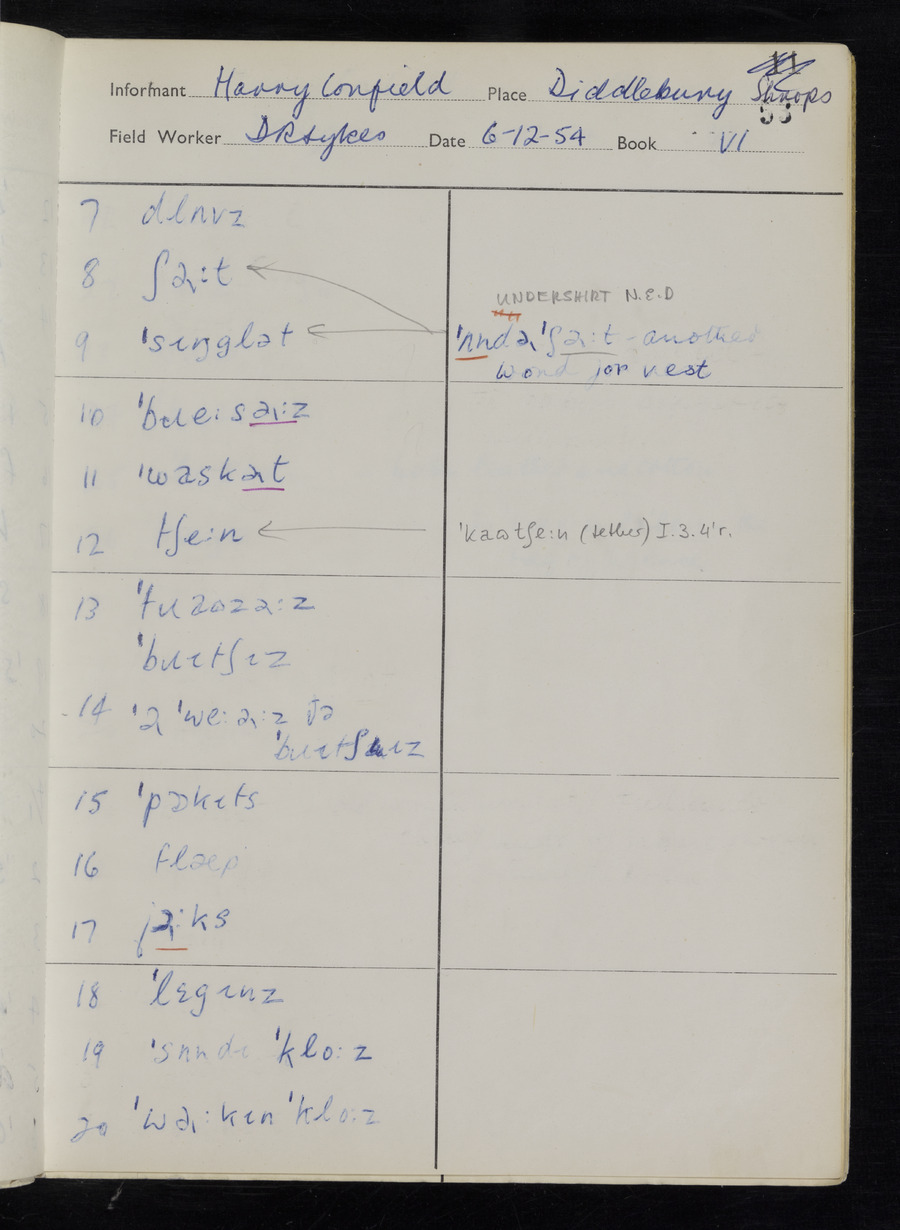 Informant Harry Confield Place Diddlebury Shrops
Field Worker D R Sykes Date 6-12-54 Book VI
7 glʌvz
8 ʃəɹ:t
9 'sɪŋglət
UNDERSHIRT N.E.D
'ʌndəɹ'ʃəɹ:t - another
word for vest
10 'bɹe:səɹ:z
11 'wɛskət
12 tʃe:n
'kaʊtʃe:n (tether) I.3.4'r.
13 'tɹaʊzə:z
'bɹɪtʃɪz
14 'əɹ 'we:əɹ:z ðə
'bɹɪtʃɪz
15 'pɒkɪts
16 flæp
17 jəɹ:ks
18 'lɛgɪnz
19 'sʌndɪ 'klo:z
20 'wəɹ:kɪn 'klo:z